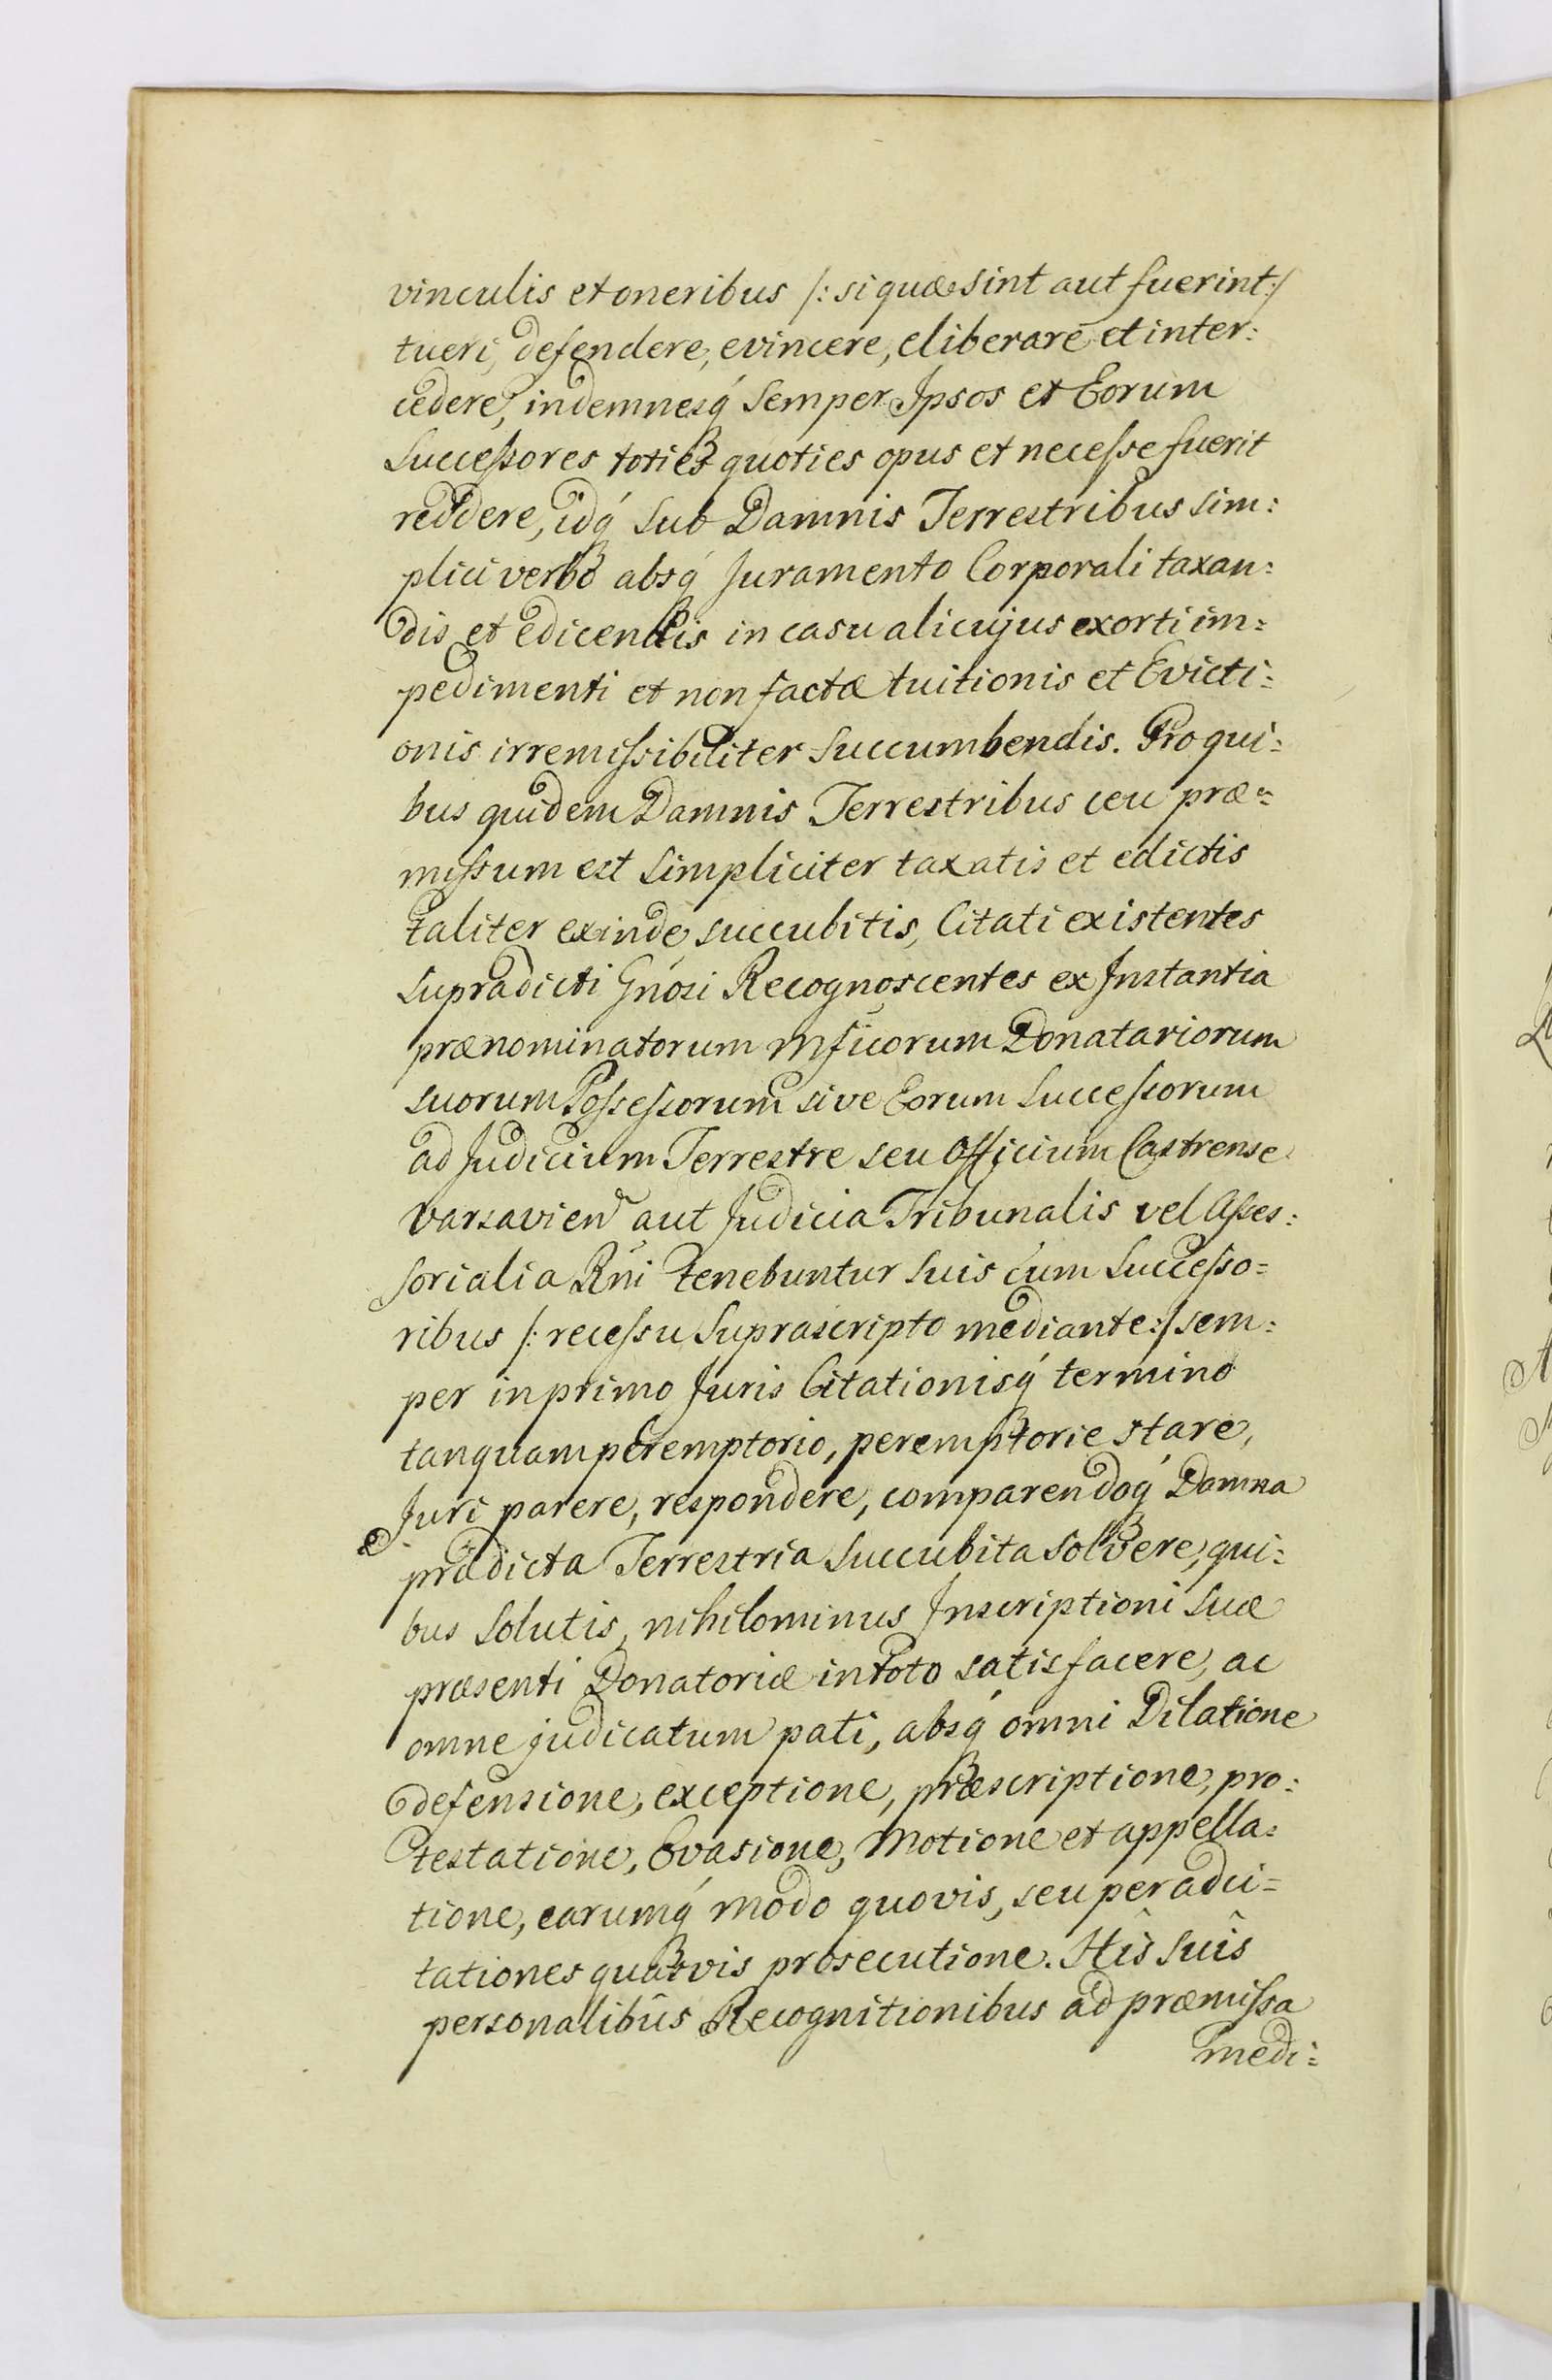 vinculis et oneribus /: si quæ sint aut fuerint :/
tueri, defendere, evincere, eliberare et inter:
cedere, indemnesq́ Semper Ipsos et Eorum
Successores toties quoties opus et necesse fuerit
reddere, idq́ Sub Damnis Terrestribus sim:
plici verbo absq́ Juramento Corporali taxan:
dis et edicendis in casu alicujus exorti im=
pedimenti et non factæ tuitionis et Evicti:
onis irremissibiliter succumbendis. Pro qui:
bus quidem Damnis Terrestribus ceu præ=
missum est simpliciter taxatis et edictis
taliter exinde succubitis, Citati existentes
supradicti Gnósi Recognoscentes ex Instantia
prænominatorum Mficorum Donatariorum
suorum Possessorum sive Eorum Successorum
ad Judicium Terrestre seu Officium Castrense
Varsavien̄ aut Judicia Tribunalis vel Asses:
sorialia Rńi tenebuntur suis cum Successo=
ribus /: recessu Suprascripto mediante :/ sem:
per in primo Juris Citationisq́ termino
tanquam peremptorio, peremptorie stare,
Juri parere, respondere, comparendoq́ Damna
prædicta Terrestria succubita solvere, qui:
bus Solutis, nihilominus Inscriptioni suæ
præsenti Donatoriæ in toto satisfacere, ac
omne judicatum pati, absq́ omni Dilatione
defensione, exceptione, præscriptione, pro:
testatione, Evasione, Motione et appella:
tione, earumq́ modo quovis, seu per adci=
tationes quasvis prosecutione. Hîs suîs
personalibûs Recognitionibus ad præmissa
medi: